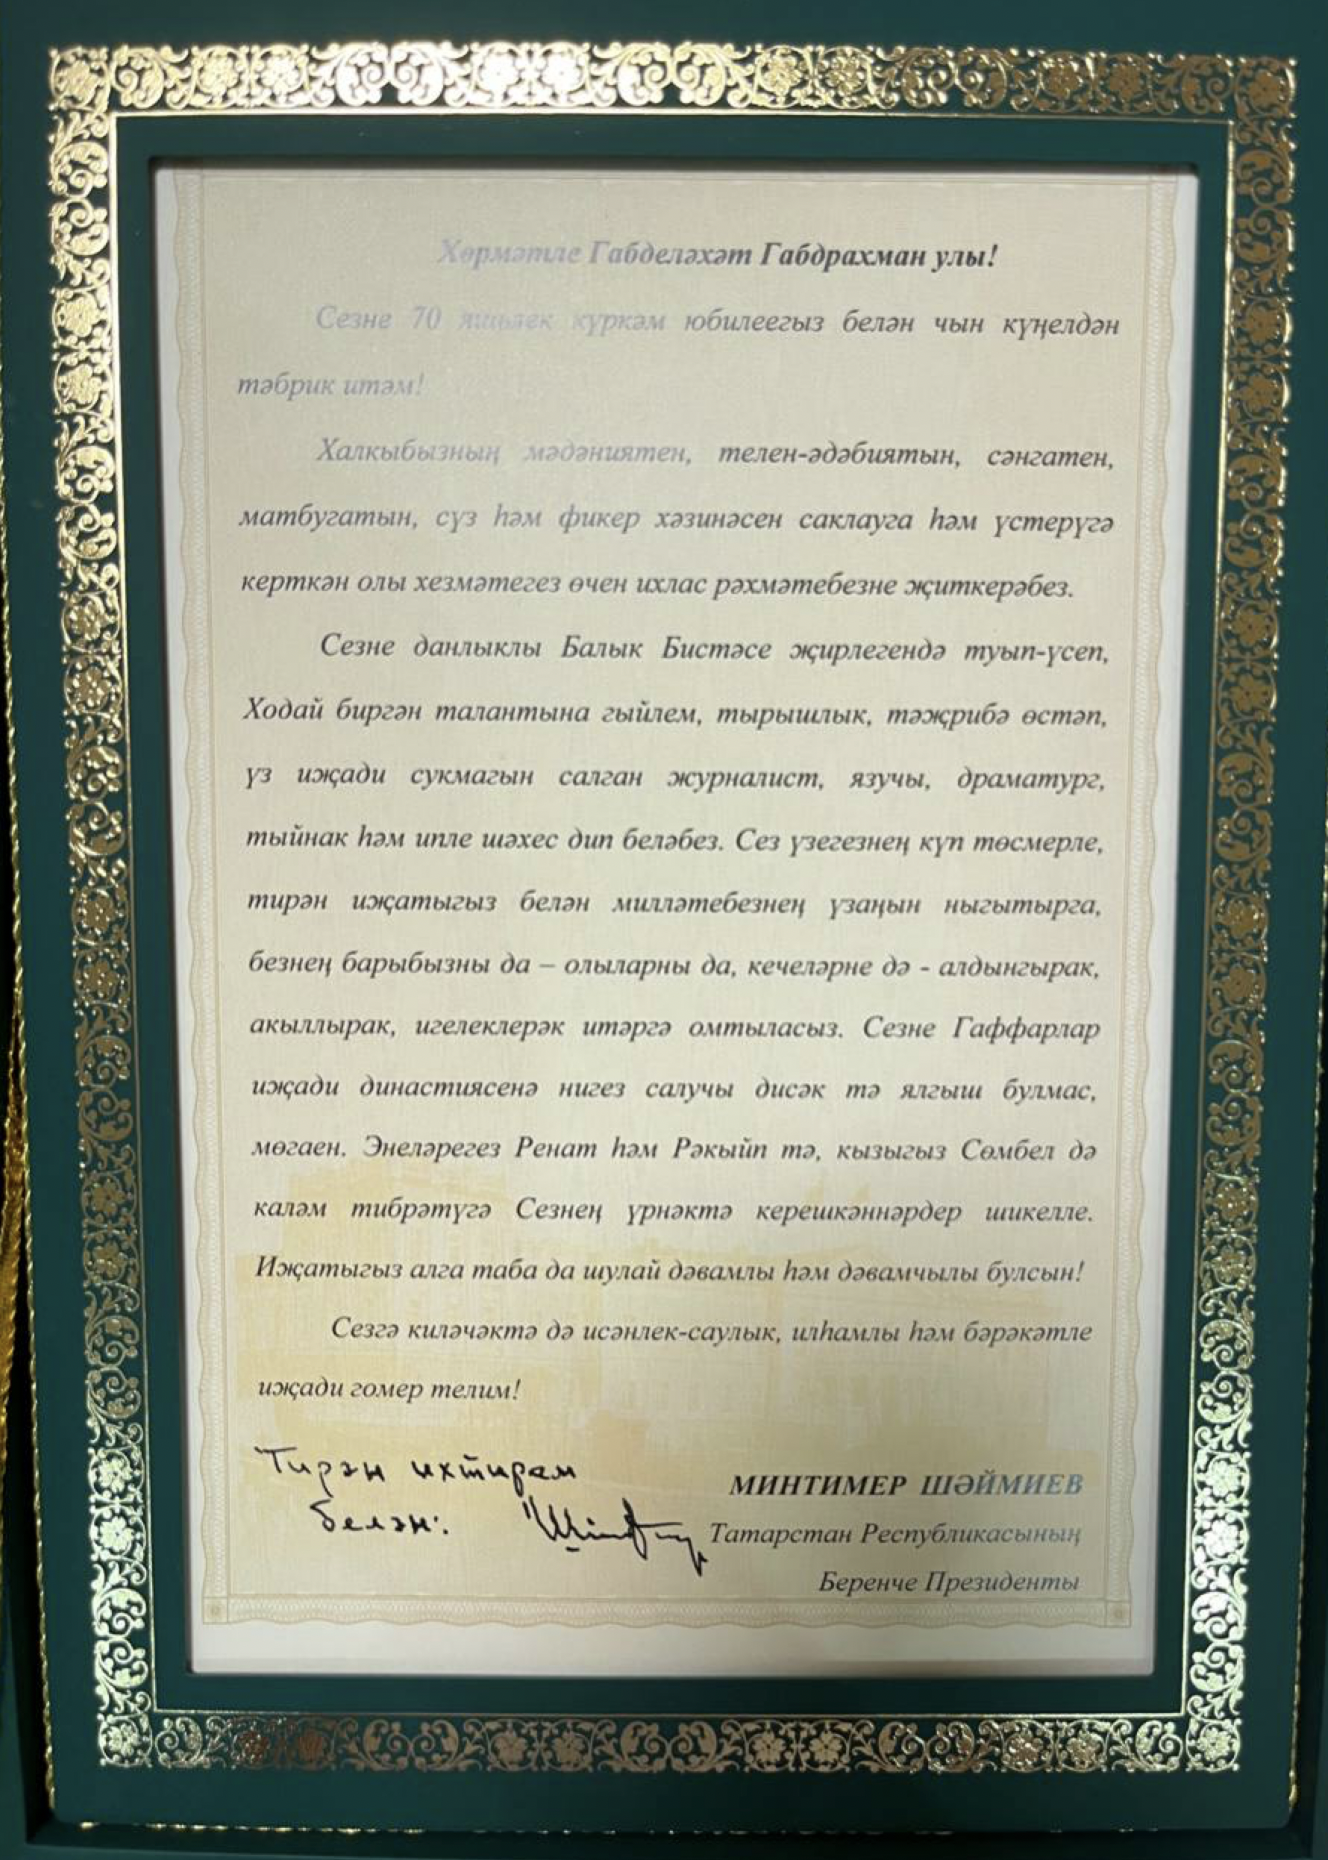 Хөрмәтле Габделәхәт Габдрахман улы!
Сезне 70 яшьлек күркәм юбилеегыз белән чын күңелдән
тәбрик итәм!
Халкыбызның мәдәниятен, телен-әдәбиятын, сәнгатен,
матбугатын, сүз һәм фикер хәзинәсен саклауга һәм үстерүгә
керткән олы хезмәтегез өчен ихлас рәхмәтебезне җиткерәбез.
Сезне данлыклы Балык Бистәсе җирлегендә туып-үсеп,
Ходай биргән талантына гыйлем, тырышлык, тәҗрибә өстәп,
үз иҗади сукмагын салган журналист, язучы, драматург,
тыйнак һәм ипле шәхес дип беләбез. Сез үзегезнең күп төсмерле,
тирән иҗатыгыз белән милләтебезнең үзаңын ныгытырга,
безнең барыбызны да – олыларны да, кечеләрне дә - алдынгырак,
акыллырак, игелеклерәк итәргә омтыласыз. Сезне Гаффарлар
иҗади династиясенә нигез салучы дисәк тә ялгыш булмас,
мөгаен. Энеләрегез Ренат һәм Рәкыйп тә, кызыгыз Сөмбел дә
каләм тибрәтүгә Сезнең үрнәктә керешкәннәрдер шикелле.
Иҗатыгыз алга таба да шулай дәвамлы һәм дәвамчылы булсын!
Сезгә киләчәктә дә исәнлек-саулык, илһамлы һәм бәрәкәтле
иҗади гомер телим!
Тирән ихтирам
белән:
МИНТИМЕР ШӘЙМИЕВ
Татарстан Республикасының
Беренче Президенты